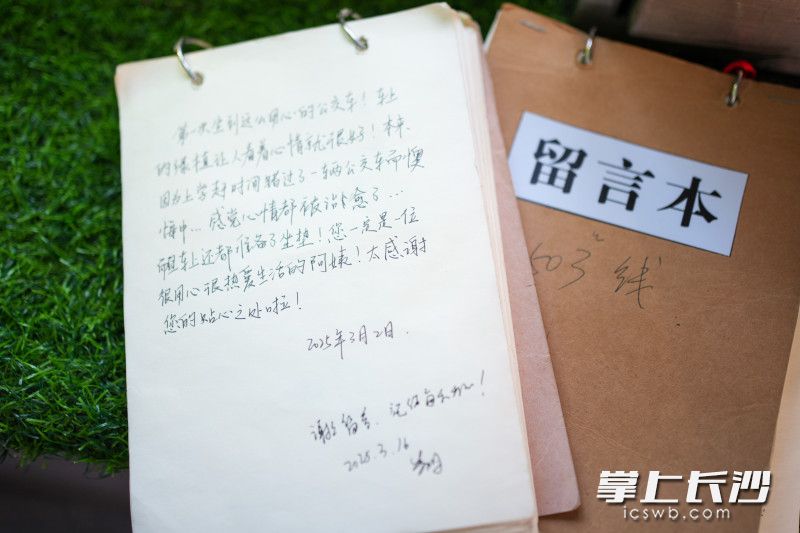 第一次坐到这么用心的公交车！车上
的绿植让人看着心情就很好！本来
因为上学赶时间错过了一车两公交车而懊
悔中...感觉心情都被治愈了...
而且车上还都准备了坐垫！您一定是一位
很用心很热爱生活的阿姨！太感谢
您的贴心之处啦！
2025年3月2日.
谢谢留言.
2025.3.16
留言本
503 线
掌上长沙
icswb.com